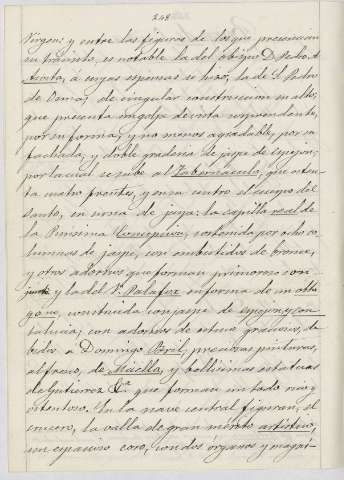 248
Virgen; y entre las figuras de los que presencian
su tránsito, es notable la del obispo D. Pedro A
Acosta, á cuyas espensas se hizo; la de S. Pedro
de Osma, de singular construccion en alto,
que presenta un golpe de vista sorprendente,
por su forma, y no menos agradable, por su
fachada, y doble graderia de jaspe de espejon;
por la cual se sube al Tabernáculo, que osten-
ta cuatro frentes, y en su centro el cuerpo del
Santo, en urna de jaspe; la capilla real de
la Purisima Concepcion, sostenida por ocho co-
lumnas de jaspe, con embutidos de bronce,
y otros adornos que forman primoroso con
junto y la del Vᵉ. Palafox en forma de un octó
gono, construida con jaspe de espejon, y con
talucia; con adornos de estuco graciosos, de-
bidos a Domingo Bril, preciosas pinturas,
al fresco, de Maella, y bellisimas estatuas
de Gutierrez &ª que forman un todo muy
ostentoso. En la nave central figuran, el
crucero, la valla de gran mérito artistico,
un espacioso coro, con dos órganos y magní-